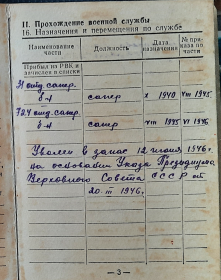 II. Прохождение военной службы
16. Назначения и перемещения по службе
Наименование части
Должность
Дата назначения
№ приказа по части
Прибыл из РВК и зачислен в списки
31 отд. сапр.
б-н сапер X 1940 VIII 1945
724 отд. сапр.
б-н сапер VIII 1945 VI 1946
Уволен в запас 12 июня 1946г.
на основании Указа Президиума
Верховного Совета СССР от
20. III 1946.
— 3 —